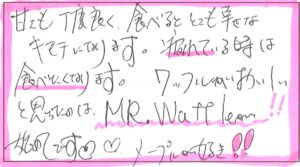 甘さも丁度良く、食べるととても幸せな
キモチになります。疲れている時は
食べたくなります。ワッフルがおいしい
と思ったのは、MR.Waffleが
初めてです♡メープルが好き!!